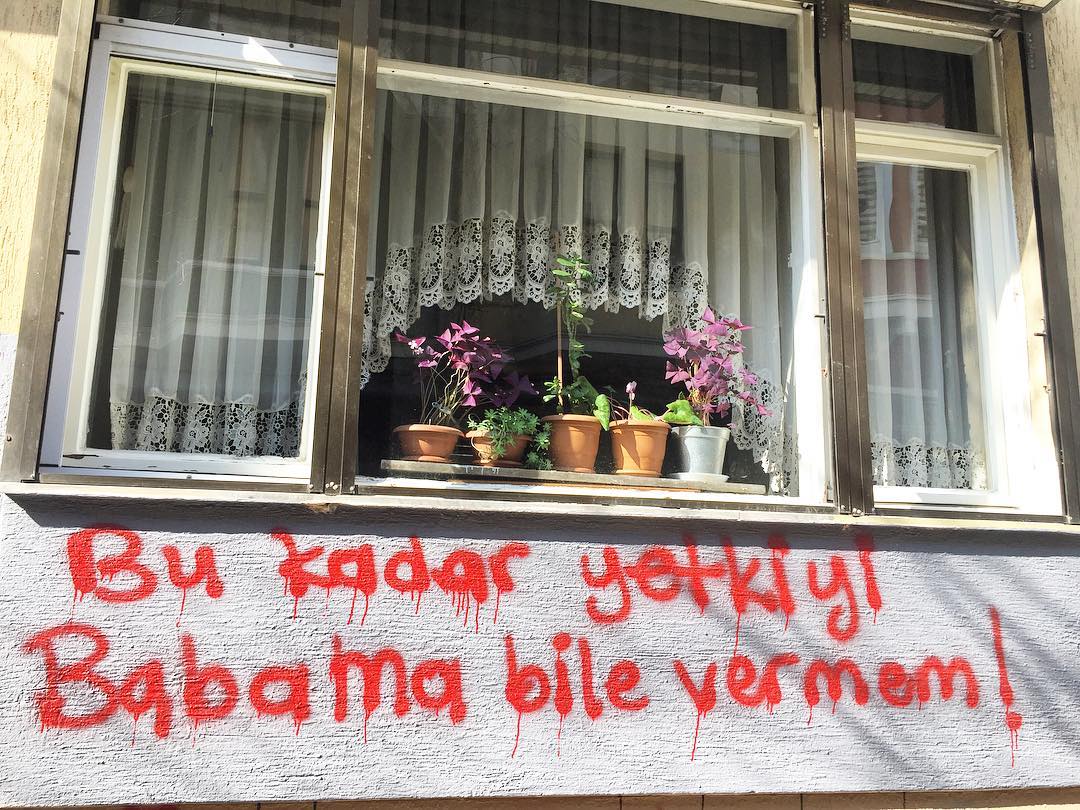 Bu kadar yetkiyi
Babama bile vermem!